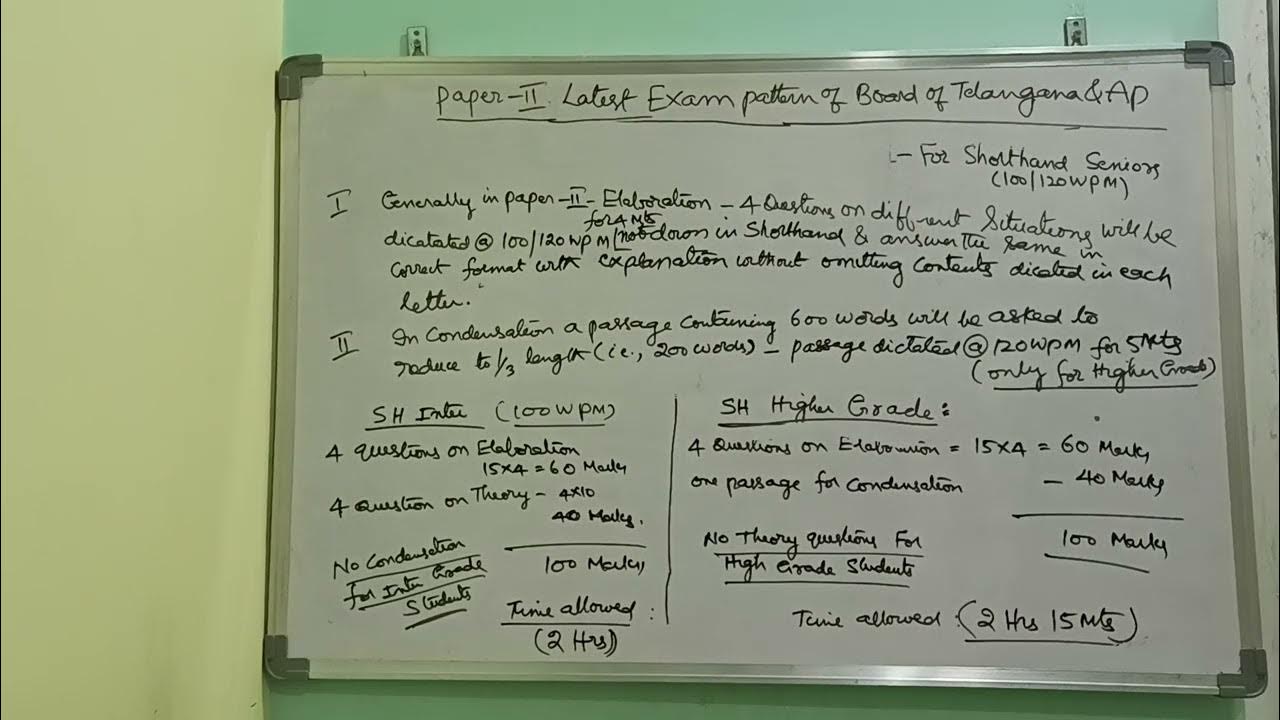 Paper-II. Latest Exam pattern of Board of Telangana & AP
- For Shorthand Seniors
(100/120 WPM)
I Generally in paper-II- Elaboration - 4 Questions on different Situations will be
for 4 Mts
dicatated @ 100/120 WPM [not down in Shorthand & answer the same in
correct format with explanation without omitting contents dicated in each
letter.
II In Condensation a passage containing 600 words will be asked to
reduce to 1/3 length (i.e., 200 words) - passage dictated @ 120 WPM for 5 Mts
(only for Higher Grade)
SH Inter (100 WPM)
4 questions on Elaboration
15x4 = 60 Marks
4 Question on Theory - 4x10
40 Marks.
100 Marks
No Condensation
for Inter Grade
Students
Time allowed :
(2 Hrs)
SH Higher Grade:
4 Questions on Elaboration = 15x4 = 60 Marks
one passage for condensation - 40 Marks
100 Marks
No Theory questions For
High Grade Students
Time allowed : (2 Hrs 15 Mts)